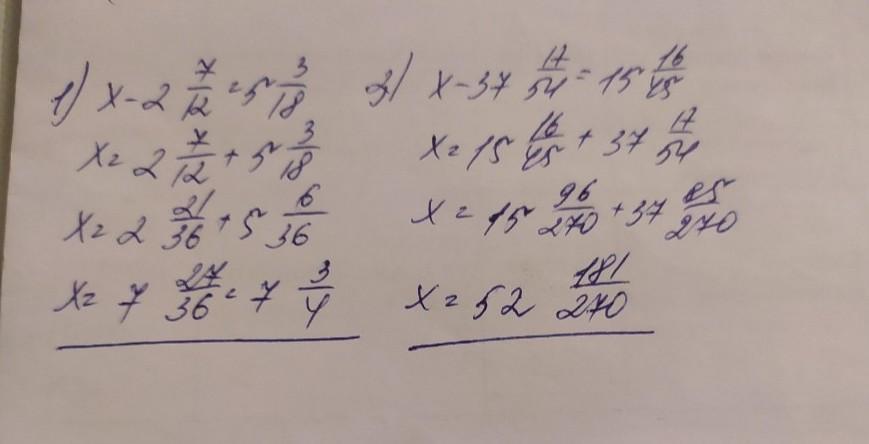 1) x - 2 7/12 = 5 3/18
x = 2 7/12 + 5 3/18
x = 2 21/36 + 5 6/36
x = 7 27/36 = 7 3/4
2) x - 37 17/54 = 15 16/45
x = 15 16/45 + 37 17/54
x = 15 96/270 + 37 85/270
x = 52 181/270